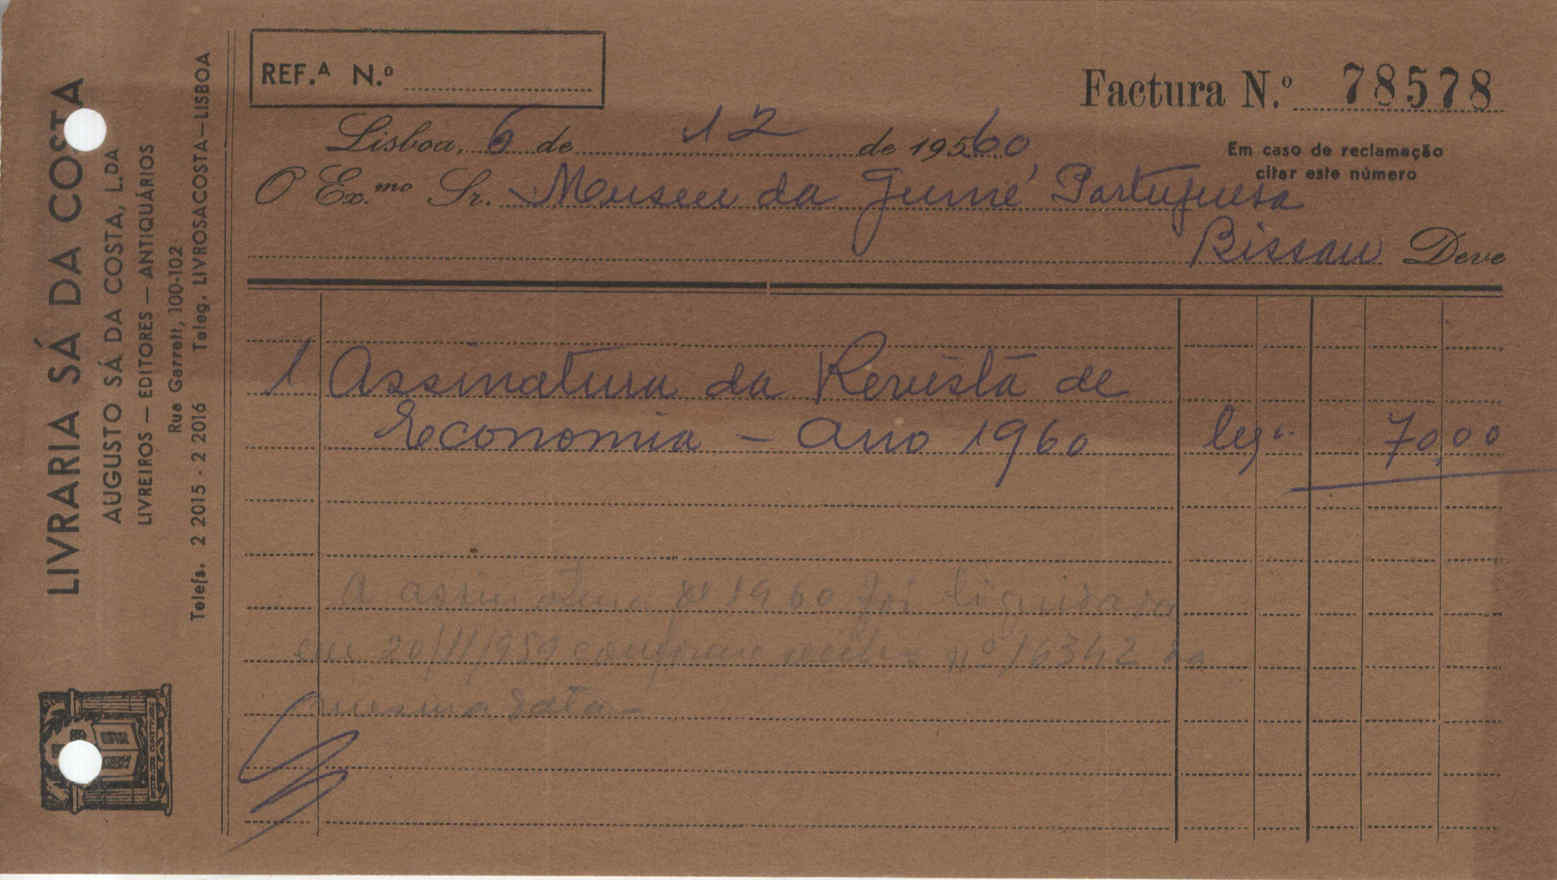 LIVRARIA SÁ DA COSTA
AUGUSTO SÁ DA COSTA, L.DA
LIVREIROS — EDITORES — ANTIQUÁRIOS
Rua Garrett, 100-102
Telefs. 2 2015 - 2 2016 Teleg. LIVROSACOSTA—LISBOA
REF.ᴬ N.º
Factura N.º 78578
Em caso de reclamação
citar este número
Lisboa, 6 de 12 de 1960
O Ex.mo Sr. Museu da Guiné Portuguesa
Bissau Deve
1 Assinatura da Revista de
Economia — Ano 1960 70,00
A assinatura de 1960 foi liquidada
em 20/11/1959 conforme recibo nº 16342 da
mesma data —